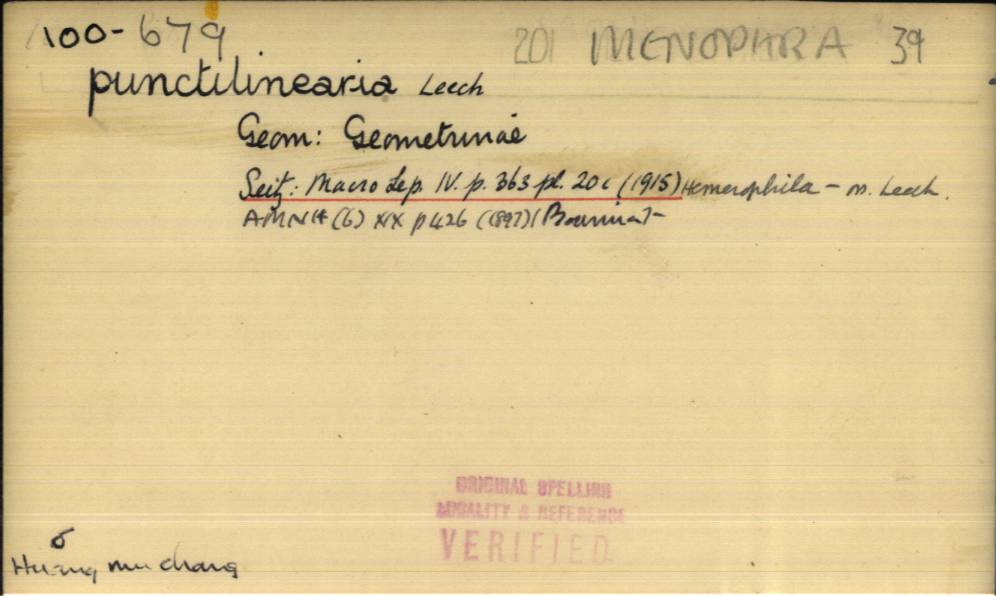 100-679 201 MENOPHRA 39
punctilinearia Leech
Geom: Geometrinae
Seitz: Macro Lep. IV. p. 363 pl. 20c (1915) Hemerophila - m. Leech.
AMNH (6) XIX p 426 (1897)
ORIGINAL SPELLING
LOCALITY & REFERENCE
VERIFIED
Huang mu chang